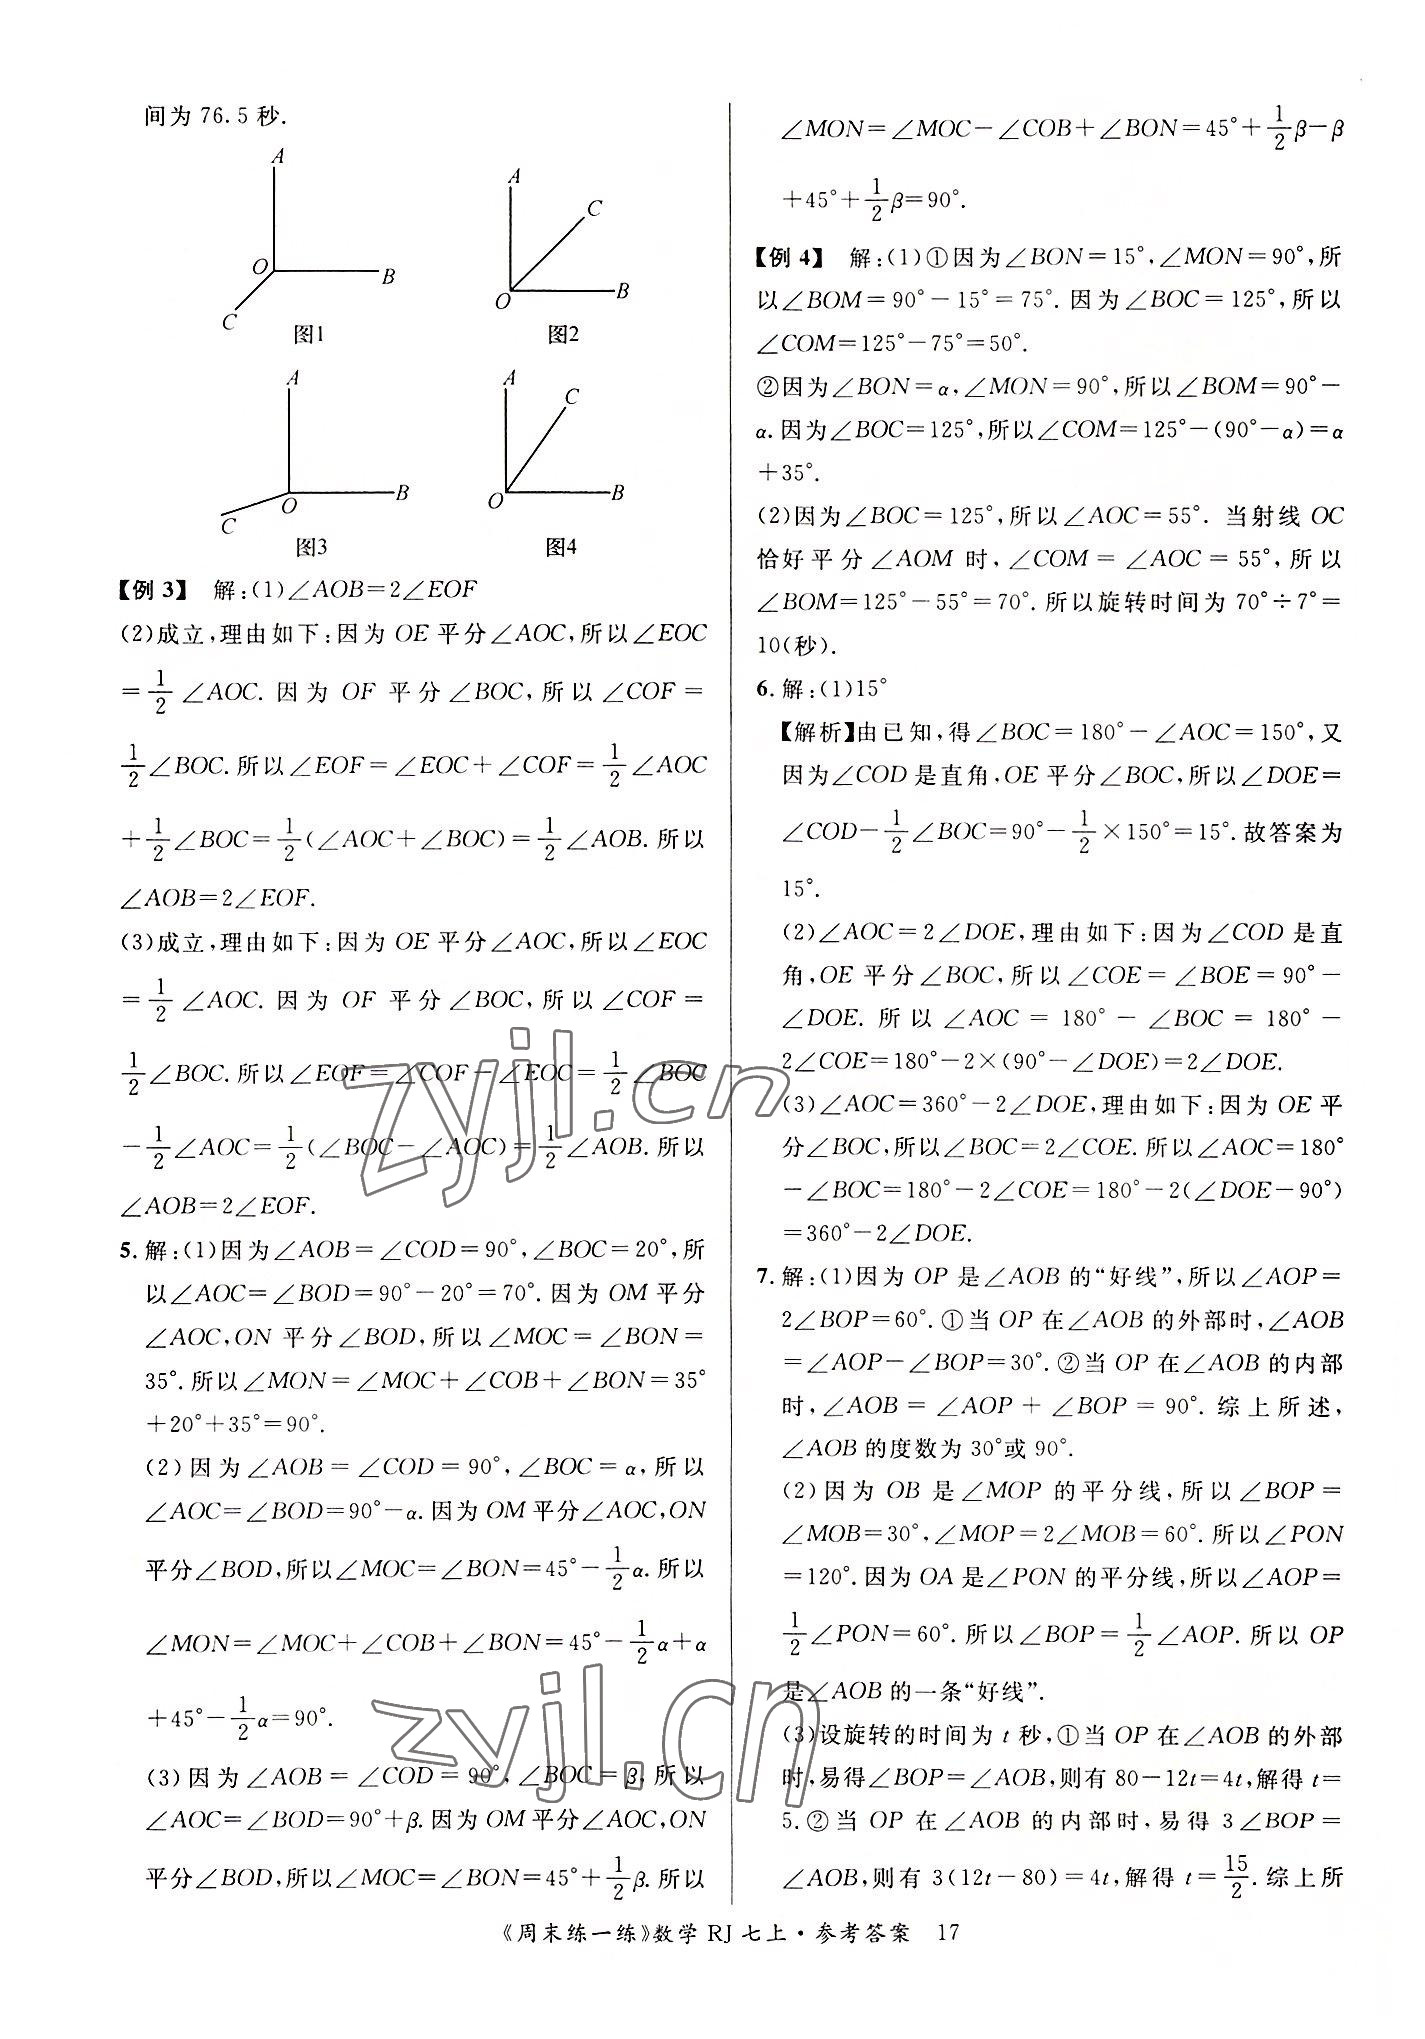 间为 76.5 秒.
A
O
B
C
图1
A
C
O
B
图2
A
O
B
C
图3
A
C
O
B
图4
【例 3】 解:(1)∠AOB=2∠EOF
(2)成立,理由如下:因为 OE 平分∠AOC,所以∠EOC
=1/2∠AOC. 因为 OF 平分∠BOC,所以∠COF=
1/2∠BOC.所以∠EOF=∠EOC+∠COF=1/2∠AOC
+1/2∠BOC=1/2(∠AOC+∠BOC)=1/2∠AOB.所以
∠AOB=2∠EOF.
(3)成立,理由如下:因为 OE 平分∠AOC,所以∠EOC
=1/2∠AOC. 因为 OF 平分∠BOC,所以∠COF=
1/2∠BOC.所以∠EOF=∠COF-∠EOC=1/2∠BOC
-1/2∠AOC=1/2(∠BOC-∠AOC)=1/2∠AOB.所以
∠AOB=2∠EOF.
5.解:(1)因为∠AOB=∠COD=90°,∠BOC=20°,所
以∠AOC=∠BOD=90°-20°=70°.因为 OM 平分
∠AOC,ON 平分∠BOD,所以∠MOC=∠BON=
35°.所以∠MON=∠MOC+∠COB+∠BON=35°
+20°+35°=90°.
(2)因为∠AOB=∠COD=90°,∠BOC=α,所以
∠AOC=∠BOD=90°-α.因为 OM 平分∠AOC,ON
平分∠BOD,所以∠MOC=∠BON=45°-1/2α.所以
∠MON=∠MOC+∠COB+∠BON=45°-1/2α+α
+45°-1/2α=90°.
(3)因为∠AOB=∠COD=90°,∠BOC=β,所以
∠AOC=∠BOD=90°+β.因为 OM 平分∠AOC,ON
平分∠BOD,所以∠MOC=∠BON=45°+1/2β.所以
∠MON=∠MOC-∠COB+∠BON=45°+1/2β-β
+45°+1/2β=90°.
【例 4】 解:(1)①因为∠BON=15°,∠MON=90°,所
以∠BOM=90°-15°=75°.因为∠BOC=125°,所以
∠COM=125°-75°=50°.
②因为∠BON=α,∠MON=90°,所以∠BOM=90°-
α.因为∠BOC=125°,所以∠COM=125°-(90°-α)=α
+35°.
(2)因为∠BOC=125°,所以∠AOC=55°. 当射线 OC
恰好平分∠AOM 时,∠COM=∠AOC=55°,所以
∠BOM=125°-55°=70°.所以旋转时间为 70°÷7°=
10(秒).
6.解:(1)15°
【解析】由已知,得∠BOC=180°-∠AOC=150°,又
因为∠COD 是直角,OE 平分∠BOC,所以∠DOE=
∠COD-1/2∠BOC=90°-1/2×150°=15°.故答案为
15°.
(2)∠AOC=2∠DOE,理由如下:因为∠COD 是直
角,OE 平分∠BOC,所以∠COE=∠BOE=90°-
∠DOE. 所以∠AOC=180°-∠BOC=180°-
2∠COE=180°-2×(90°-∠DOE)=2∠DOE.
(3)∠AOC=360°-2∠DOE,理由如下:因为 OE 平
分∠BOC,所以∠BOC=2∠COE.所以∠AOC=180°
-∠BOC=180°-2∠COE=180°-2(∠DOE-90°)
=360°-2∠DOE.
7.解:(1)因为 OP 是∠AOB 的“好线”,所以∠AOP=
2∠BOP=60°.①当 OP 在∠AOB 的外部时,∠AOB
=∠AOP-∠BOP=30°.②当 OP 在∠AOB 的内部
时,∠AOB=∠AOP+∠BOP=90°.综上所述,
∠AOB 的度数为 30°或 90°.
(2)因为 OB 是∠MOP 的平分线,所以∠BOP=
∠MOB=30°,∠MOP=2∠MOB=60°.所以∠PON
=120°.因为 OA 是∠PON 的平分线,所以∠AOP=
1/2∠PON=60°.所以∠BOP=1/2∠AOP.所以 OP
是∠AOB 的一条“好线”.
(3)设旋转的时间为 t 秒,①当 OP 在∠AOB 的外部
时,易得∠BOP=∠AOB,则有 80-12t=4t,解得 t=
5.②当 OP 在∠AOB 的内部时,易得 3∠BOP=
∠AOB,则有 3(12t-80)=4t,解得 t=15/2.综上所
《周末练一练》数学 RJ 七上·参考答案 17
zyjl.cn
zyjl.cn